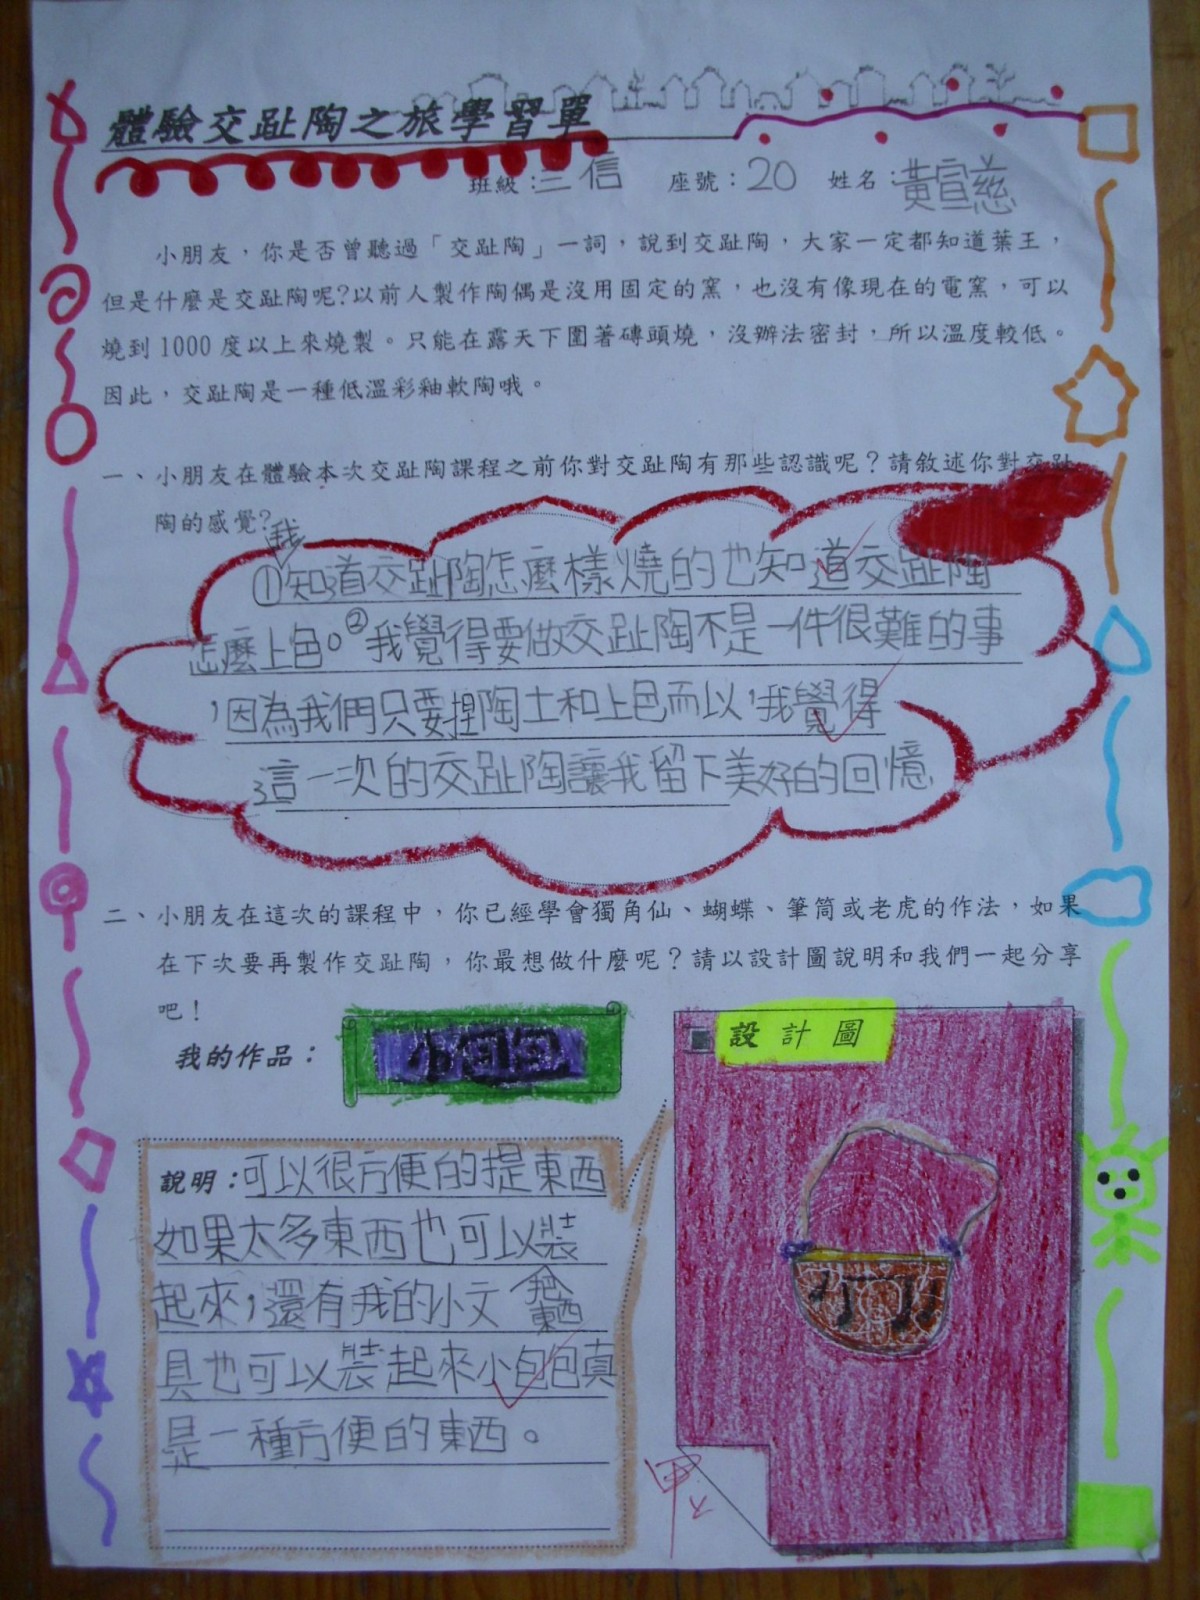 體驗交趾陶之旅學習單
班級：三信 座號：20 姓名：黃宣慈
小朋友，你是否曾聽過「交趾陶」一詞，說到交趾陶，大家一定都知道葉王，
但是什麼是交趾陶呢?以前人製作陶偶是沒用固定的窯，也沒有像現在的電窯，可以
燒到1000度以上來燒製。只能在露天下圍著磚頭燒，沒辦法密封，所以溫度較低。
因此，交趾陶是一種低溫彩釉軟陶哦。
一、小朋友在體驗本次交趾陶課程之前你對交趾陶有那些認識呢？請敘述你對交趾
陶的感覺?
①我知道交趾陶怎麼樣燒的也知道交趾陶
怎麼上色。②我覺得要做交趾陶不是一件很難的事
，因為我們只要捏陶土和上色而以，我覺得
這一次的交趾陶讓我留下美好的回憶
二、小朋友在這次的課程中，你已經學會獨角仙、蝴蝶、筆筒或老虎的作法，如果
在下次要再製作交趾陶，你最想做什麼呢？請以設計圖說明和我們一起分享
吧！
我的作品：小包包
設計圖
說明：可以很方便的提東西
如果太多東西也可以裝
起來，還有我的小文
把東西
具也可以裝起來小包包真
是一種方便的東西。
甲